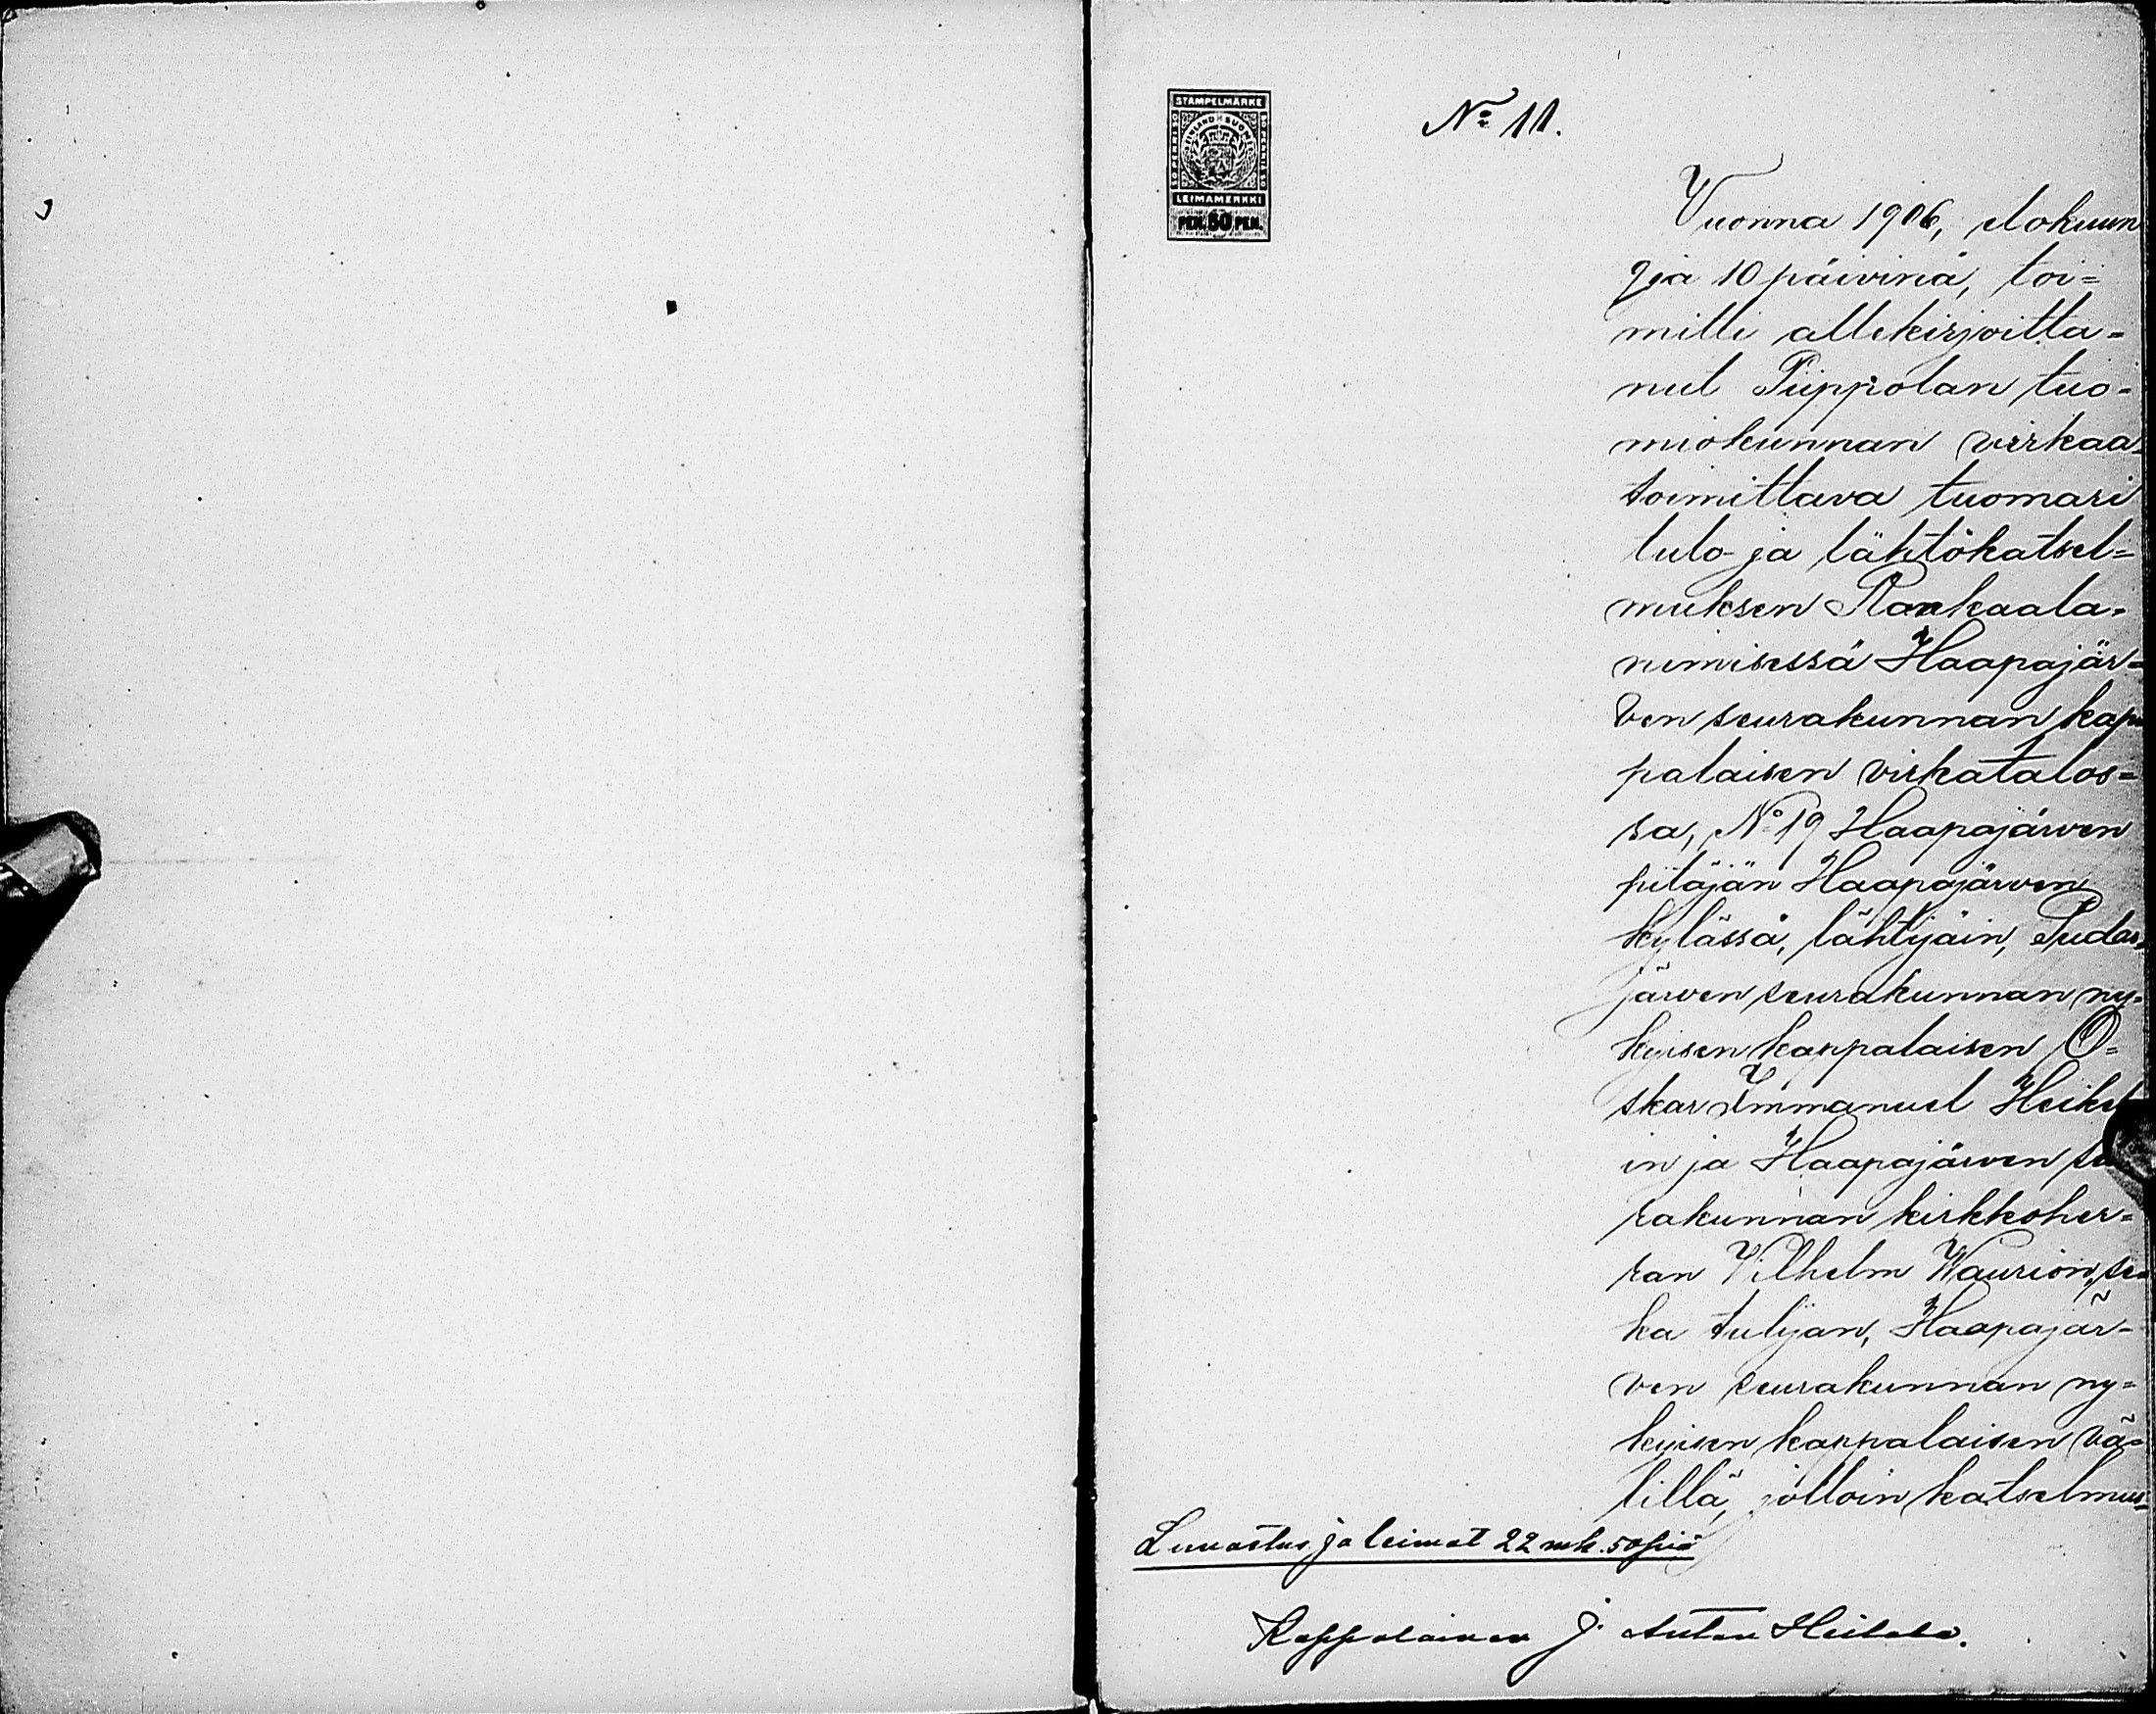 STÄMPELMÄRKE
FINLAND SUOMI
50 PENNI 50
50 PENNIÄ 50
LEIMAMERKKI
PEN. 50 PEN.
No 11.
Vuonna 1906, elokuun
9 ja 10 päivinä, toi=
mitti allekirjoitta=
nut Piippolan tuo=
miokunnan virkaa
toimittava tuomari
tulo- ja lähtökatsel=
muksen Rankaala=
nimisessä Haapajär=
ven seurakunnan kap
palaisen virkatalos=
sa, No 19 Haapajärven
pitäjän Haapajärven
kylässä, lähtijäin, Pudas
järven seurakunnan ny=
kyisen kappalaisen O=
skar Immanuel Heikel
in ja Haapajärven
rakunnan kirkkoher=
ran Vilhelm Waurion, se=
kä tulijan, Haapajär=
ven seurakunnan ny=
kyisen kappalaisen vä=
lillä, jolloin katselmus=
Lunastus ja leimat 22 mk. 50 piä
Kappalainen J. Anton Heikel